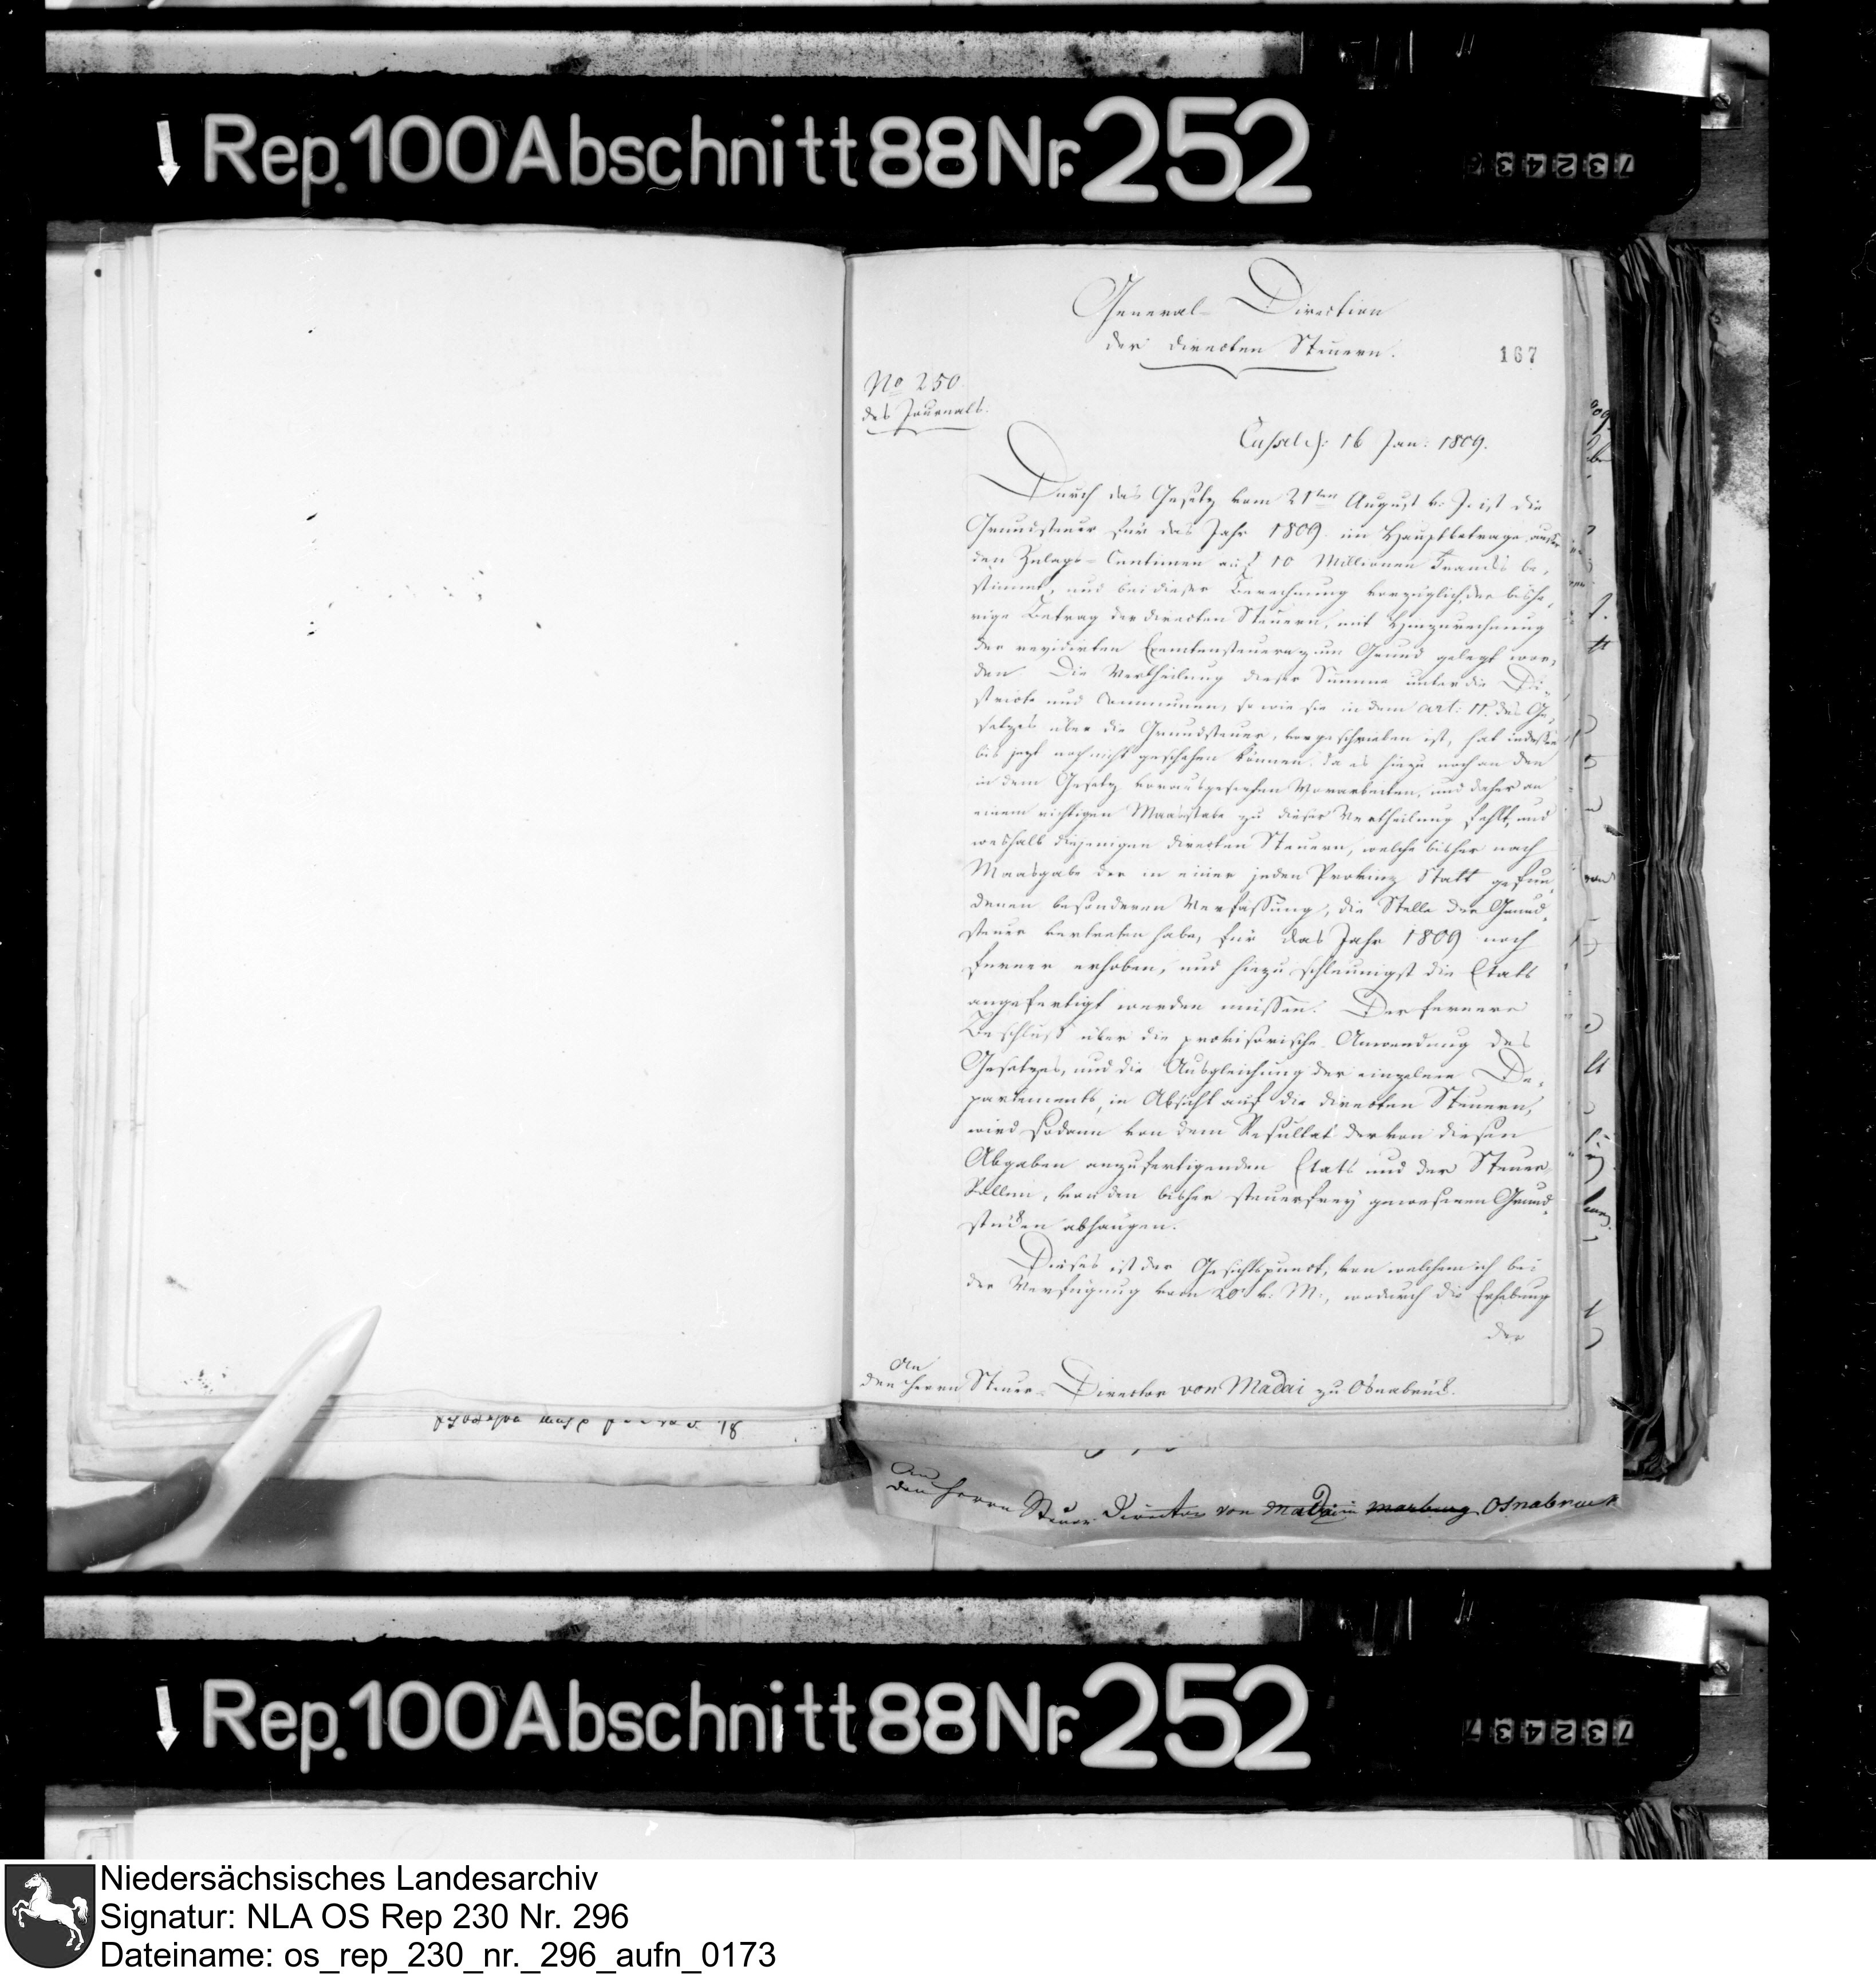 Rep. 100 Abschnitt 88 Nr. 252
732436
General-Direction
der directen Steuern.
167
No 250
des Journals.
Cassel d: 16 Jan: 1809.
Durch das Gesetz vom 21ten August v. J. ist die
Grundsteuer für das Jahr 1809 im Hauptbetrage außer
den Zulage-Centimen auf 10 Millionen Francs be-
stimmt, und bei dieser Berechnung vorzüglich der bishe-
rige Betrag der directen Steuern, mit Hinzurechnung
der revidirten Exemtensteuern zum Grund gelegt wor-
den. Die Vertheilung dieser Summe unter die Di-
stricte und Communen, so wie sie in dem art: 11. des Ge-
setzes über die Grundsteuer, vorgeschrieben ist, hat indessen
bis jezt noch nicht geschehen können, da es hiezu noch an den
in dem Gesetz vorausgesehen Vorarbeiten, und daher an
einem richtigen Maasstabe zu dieser Vertheilung fehlt, und
weshalb diejenigen directen Steuern, welche bisher nach
Maasgabe der in einer jeden Provinz Statt gefun-
denen besonderen Verfassung, die Stelle der Grund-
steuer vertreten habe, für das Jahr 1809 noch
ferner erhoben, und hiezu schleunigst die Etats
angefertigt werden müssen. Der fernere
Beschluß über die provisorische Anwendung des
Gesetzes, und die Ausgleichung der einzelnen De-
partements, in Absicht auf die directen Steuern,
wird sodann von dem Resultat der von diesen
Abgaben anzufertigenden Etats und der Steuer
Rollen, von den bisher steuerfrey gewesenen Grund-
stücken abhangen.
Dieses ist der Gesichtspunct, von welchem ich bei
der Verfügung vom 20t v. M., wodurch die Erhebung
der
An
den Herrn Steuer-Director von Madai zu Osnabrück.
An
den Herrn Steuer Director von Madai in Marburg Osnabrück
Rep. 100 Abschnitt 88 Nr. 252
732437
Niedersächsisches Landesarchiv
Signatur: NLA OS Rep 230 Nr. 296
Dateiname: os_rep_230_nr._296_aufn_0173